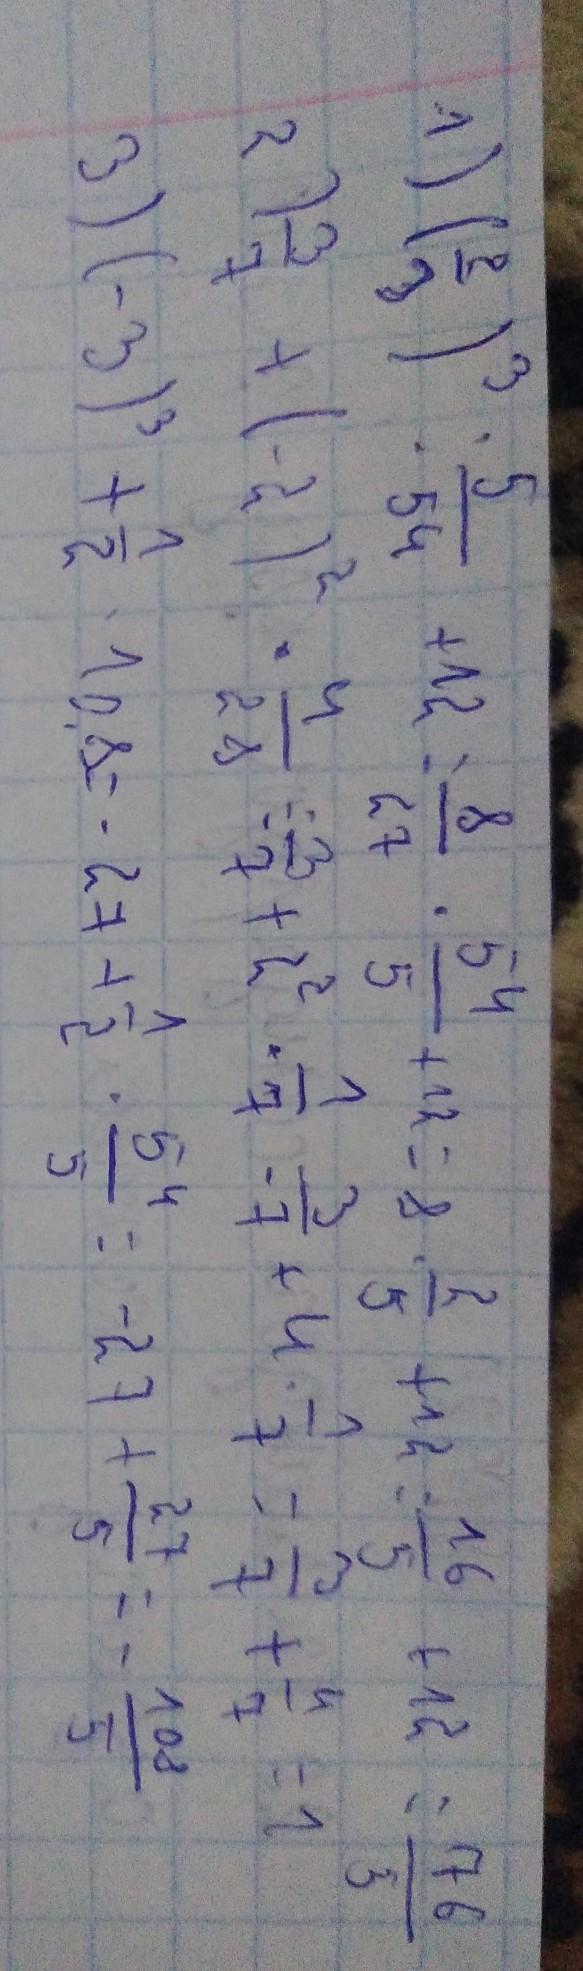 1) (2/3)³ : 5/54 + 12 = 8/27 · 54/5 + 12 = 8 · 2/5 + 12 = 16/5 + 12 = 76/5
2) 3/7 + (-2)² · 4/28 = 3/7 + 2² · 1/7 = 3/7 + 4 · 1/7 = 3/7 + 4/7 = 1
3) (-3)³ + 1/2 · 10,8 = -27 + 1/2 · 54/5 = -27 + 27/5 = -108/5